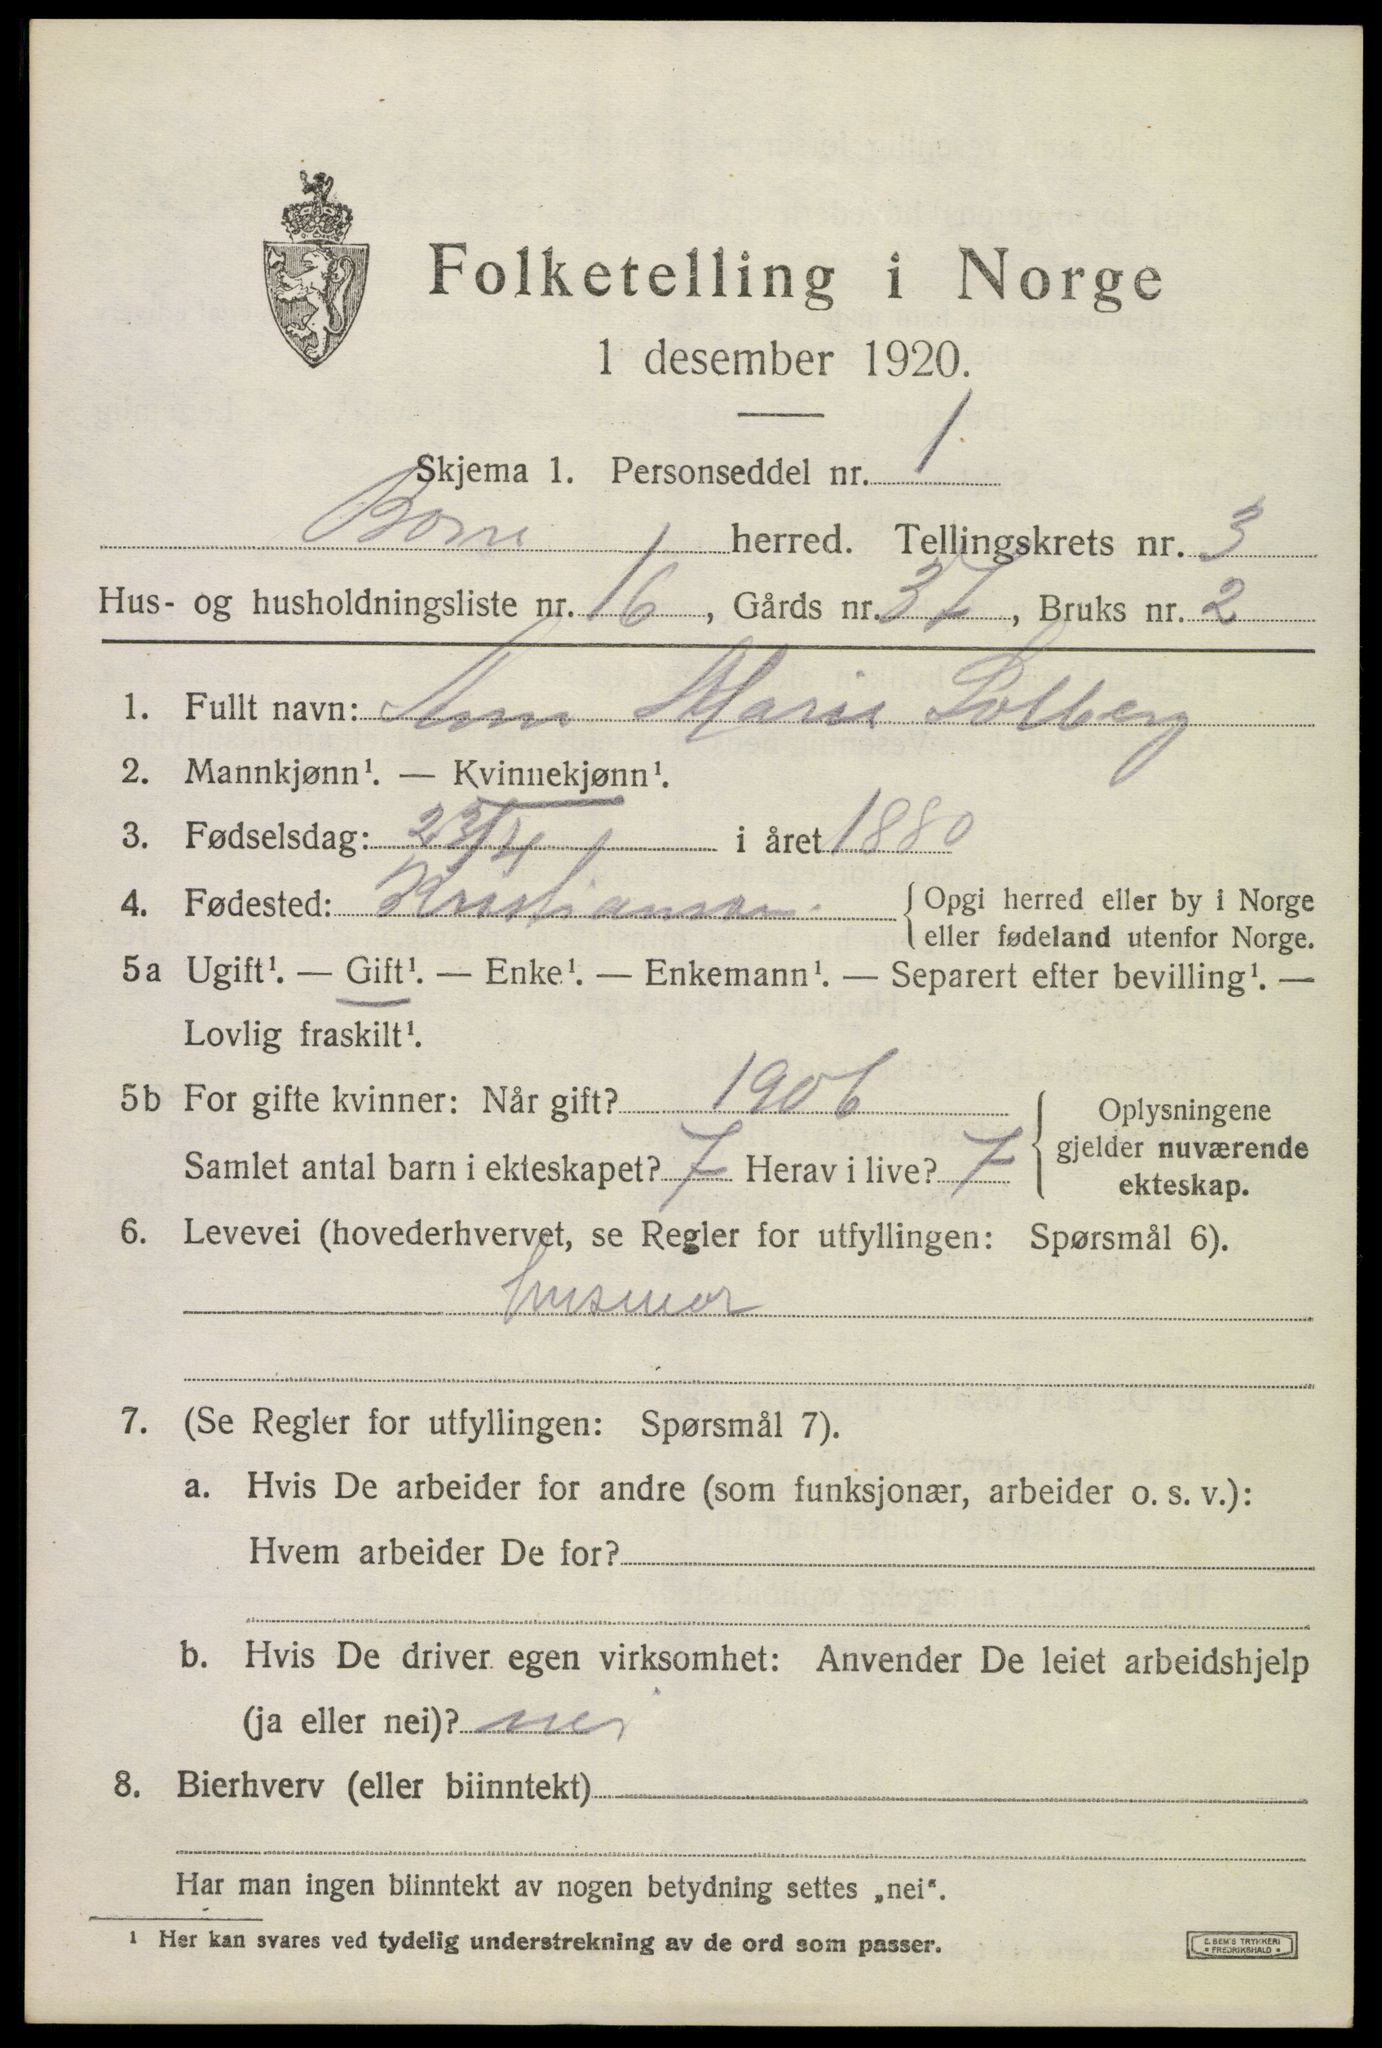 Folketelling i Norge
1 desember 1920.
Skjema 1. Personseddel nr. 1
Borre herred. Tellingskrets nr. 3
Hus- og husholdningsliste nr. 16, Gårds nr. 37, Bruks nr. 2
1. Fullt navn: Marie Solberg
2. Mannkjønn¹. — Kvinnekjønn¹.
3. Fødselsdag: 23/4 i året 1880
4. Fødested: { Opgi herred eller by i Norge
eller fødeland utenfor Norge.
5a Ugift¹. — Gift¹. — Enke¹. — Enkemann¹. — Separert efter bevilling¹. —
Lovlig fraskilt¹.
5b For gifte kvinner: Når gift? 1906
Samlet antal barn i ekteskapet? 7 Herav i live? 7
{ Oplysningene
gjelder nuværende
ekteskap.
6. Levevei (hovederhvervet, se Regler for utfyllingen: Spørsmål 6).
husmor
7. (Se Regler for utfyllingen: Spørsmål 7).
a. Hvis De arbeider for andre (som funksjonær, arbeider o. s. v.):
Hvem arbeider De for?
b. Hvis De driver egen virksomhet: Anvender De leiet arbeidshjelp
(ja eller nei)? nei
8. Bierhverv (eller biinntekt)
Har man ingen biinntekt av nogen betydning settes „nei“.
¹ Her kan svares ved tydelig understrekning av de ord som passer.
E. SEM'S TRYKKERI
• FREDRIKSHALD •